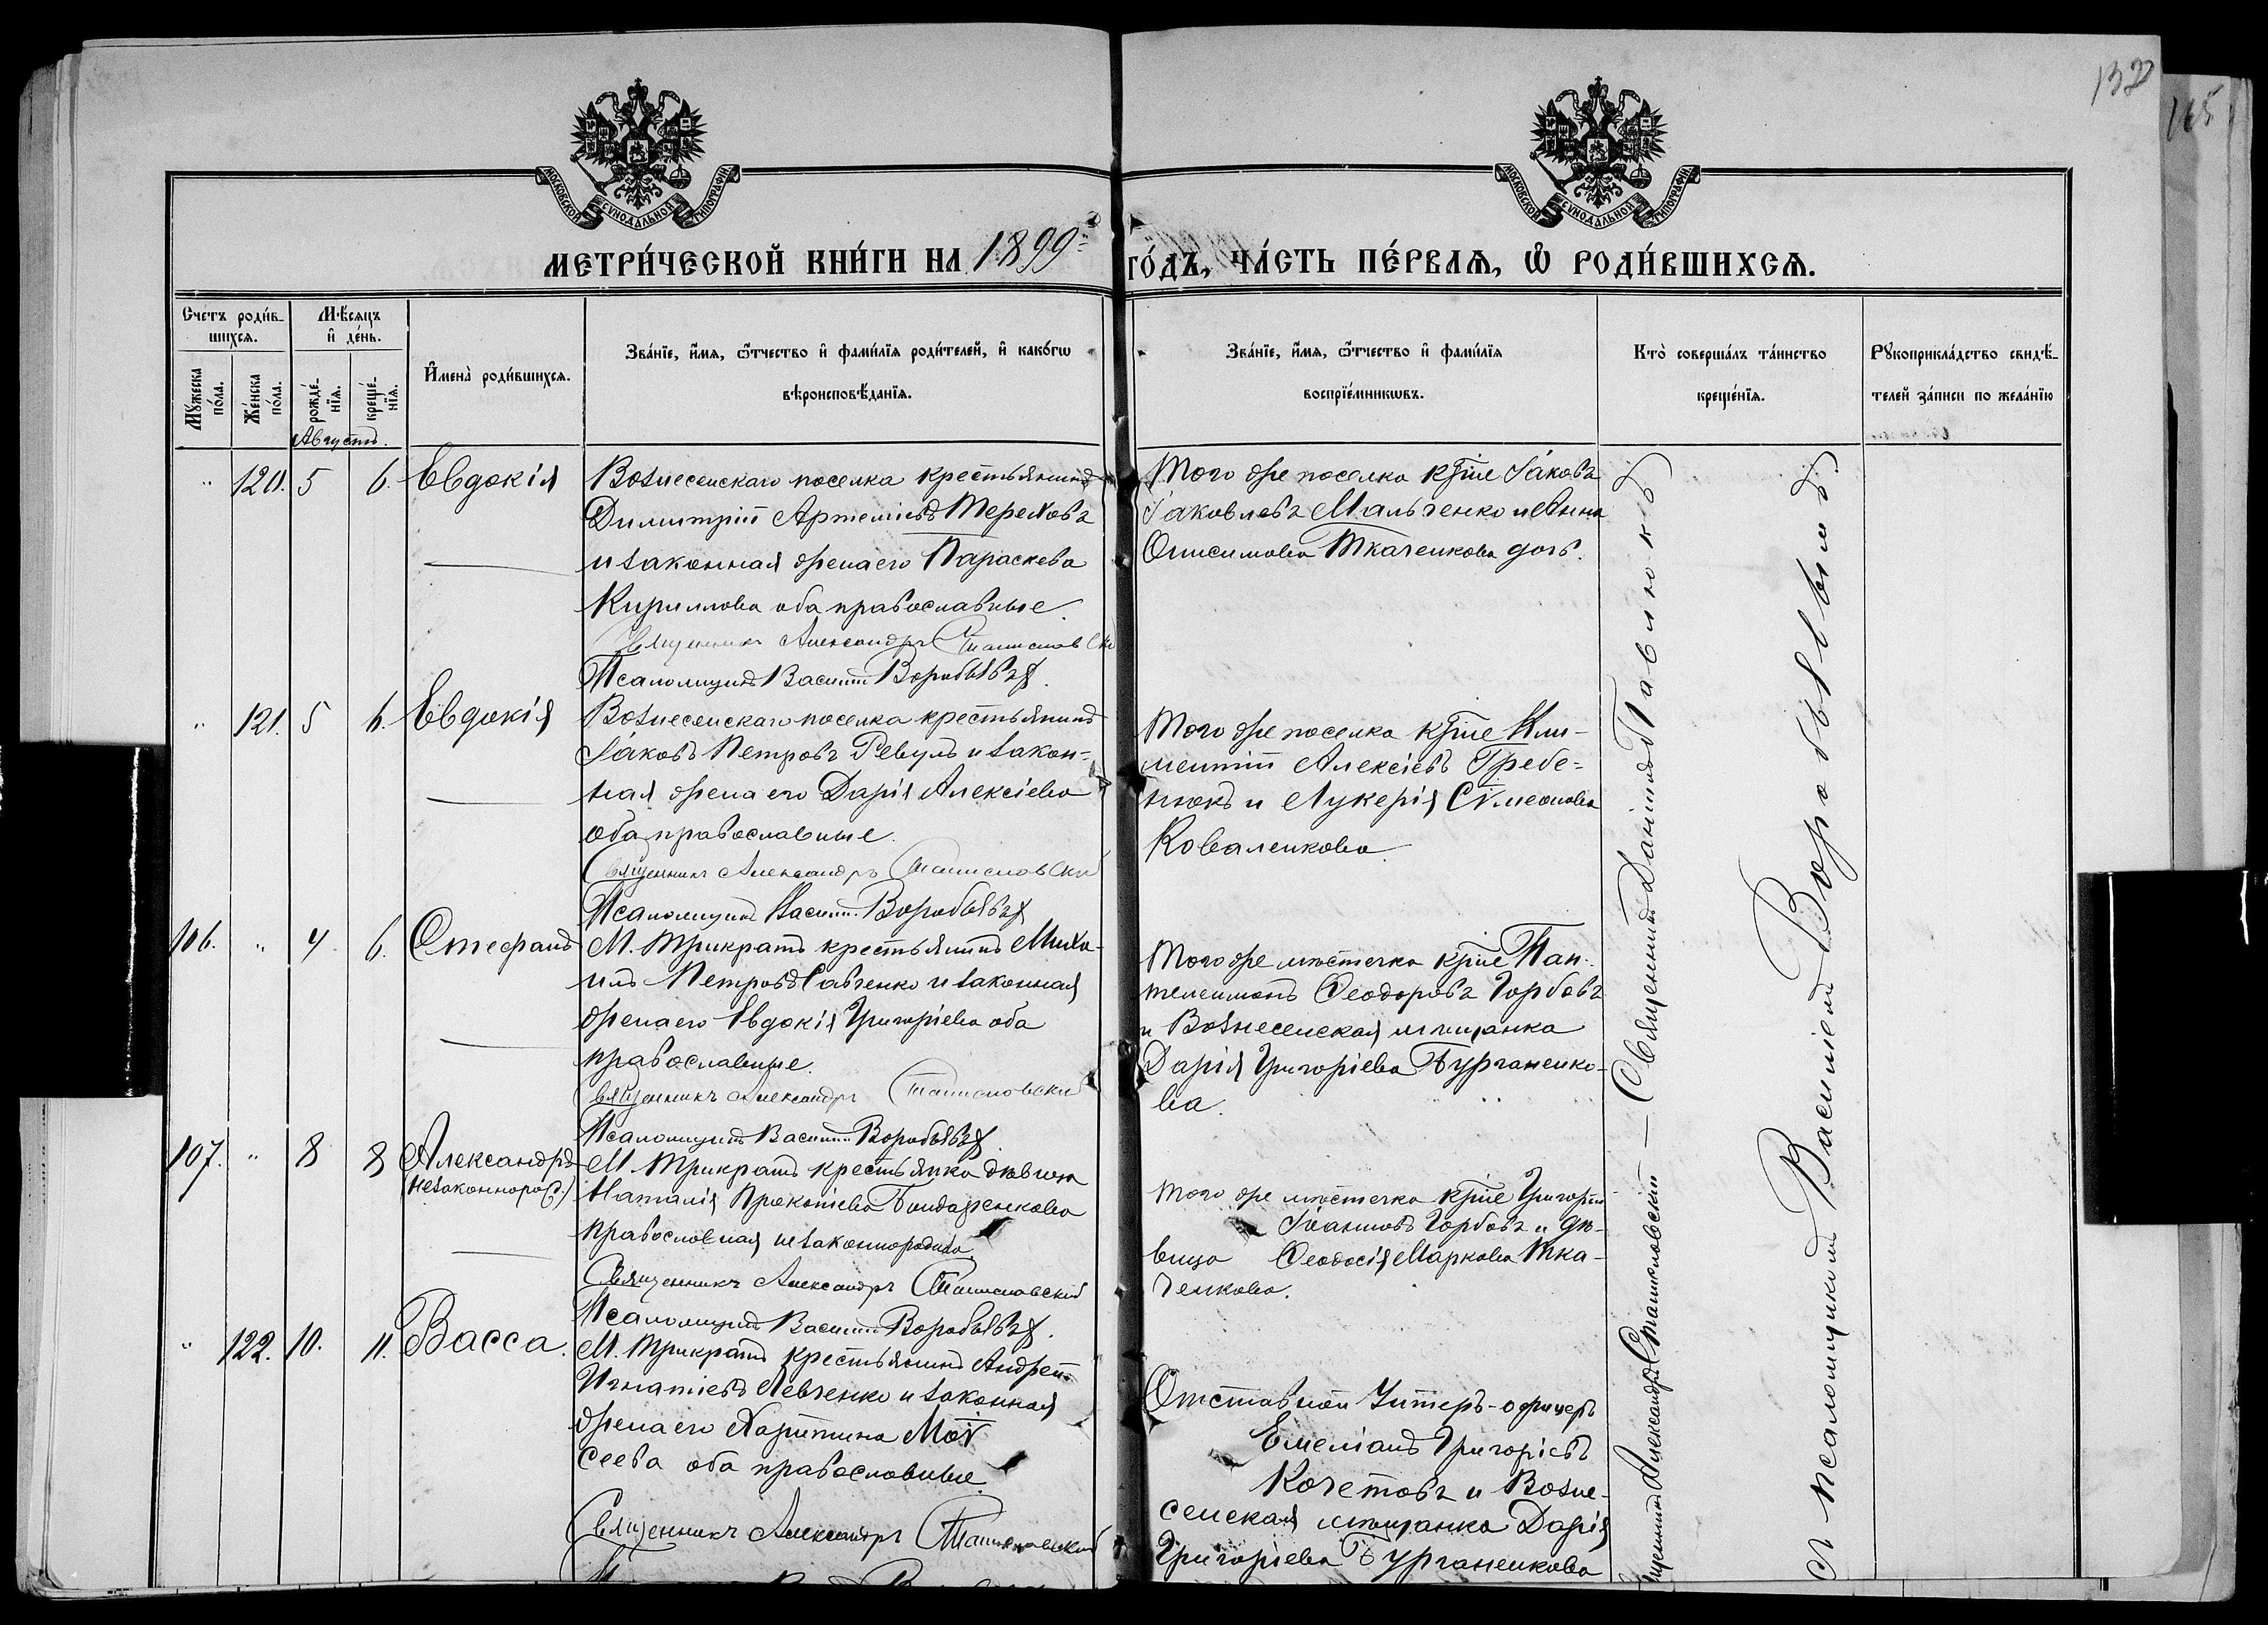 132
165
МОСКОВСКОЙ СУНОДАЛЬНОЙ ТИПОГРАФІИ
МОСКОВСКОЙ СУНОДАЛЬНОЙ ТИПОГРАФІИ
МЕТРИ́ЧЕСКОЙ КНИ́ГИ НА 1899 ГО́ДЪ, ЧА́СТЬ ПЕ́РВАѦ, Ѡ РОДИ́ВШИХСѦ.
Счетъ роди́в-
шихся.
Мꙋ́жеска по́ла.
Же́нска по́ла.
Мѣ́сяцъ
и де́нь.
рожде́-
нїя.
креще́-
нїя.
Августъ.
И҆мена̀ роди́вшихся.
Зва́нїе, и҆́мя, ѻ҆́тчество и҆ фами́лїя роди́телей, и҆ како́гѡ
вѣроисповѣ́данїя.
Зва́нїе, и҆́мя, ѻ҆́тчество и҆ фами́лїя
воспрїе́мникѡвъ.
Кто̀ соверша́лъ та́инство
креще́нїя.
Рꙋкоприкла́дство свидѣ́-
телей за́писи по жела́нїю
" 120. 5 6. Евдокія
Вознесенскаго поселка крестьянинъ
Димитрій Артеміевъ Тереховъ
и законная жена его Параскева
Кириллова оба православные.
Священникъ Александръ Станиславск
Псаломщикъ Василій Воробьевъ.
Того же поселка кр̃не Іаковъ
Іаковлевъ Мальченко и Анна
Онисимова Ткаченкова дочь.
" 121. 5 6. Евдокія
Вознесенскаго поселка крестьянинъ
Іаковъ Петровъ Ревуль и закон-
ная жена его Дарія Алексіева
оба православные.
Священникъ Александръ Станиславскій
Псаломщикъ Василій Воробьевъ
Того же поселка кр̃не Кли-
ментій Алексіевъ Гребе-
нюкъ и Лукерія Сѵмеонова
Коваленкова.
106. " 4 6. Стефанъ
М. Трикратъ крестьянинъ Миха-
илъ Петровъ Савченко и законная
жена его Евдокія Григоріева оба
православные.
Священникъ Александръ Станиславскій
Псаломщикъ Василій Воробьевъ.
Того же мѣстечка кр̃не Пан-
телеимонъ Ѳеодоровъ Горбовъ
и Вознесенская мѣщанка
Дарія Григоріева Бурганенко-
ва.
107. " 8 8 Александръ
(незаконнорож.)
М. Трикратъ крестьянка дѣвица
Наталія Прокопіева Бондаренкова
православная незаконнорожд.
Священникъ Александръ Станиславскій
Псаломщикъ Василій Воробьевъ.
Того же мѣстечка кр̃не Григорій
Іоанновъ Горбовъ и дѣ-
вица Ѳеодосія Маркова Тка-
ченкова.
" 122. 10. 11. Васса.
М. Трикратъ крестьянинъ Андрей
Игнатіевъ Левченко и законная
жена его Харитина Моѵ
сеева оба православные.
Священникъ Александръ Станиславскій
Отставной Унтеръ-офицеръ
Емеліанъ Григоріевъ
Кочетовъ и Возне-
сенская мѣщанка Дарія
Григоріева Бурганенкова
Александръ Станиславскій — Священникъ Даніилъ Павлюкъ
съ псаломщикомъ Василіемъ Воробьевымъ.